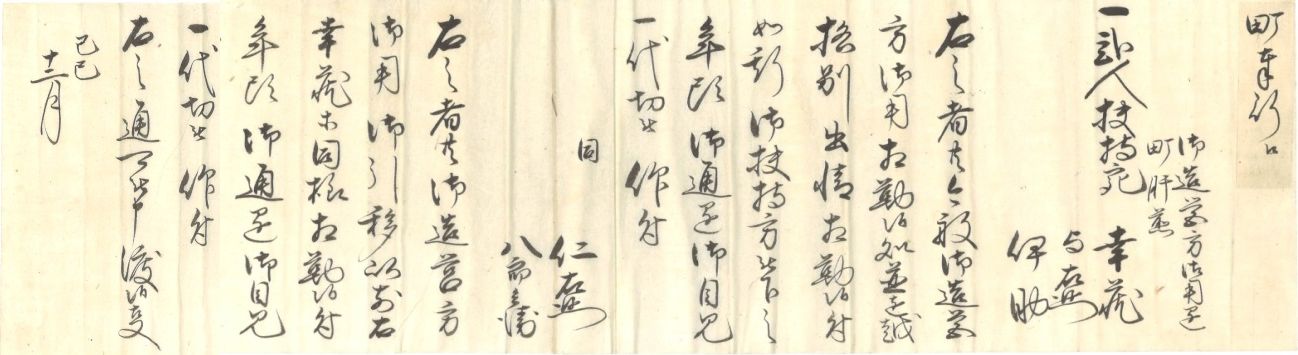 町奉行江
御造営方御用達
町肝煎
一弐人扶持宛 幸蔵
与左衛門
伊助
右之者共今般御造営
方御用相勤候処並を越
格別出情相勤候付
如斯御扶持方被下之
年頭御通迄御目見
一代切被 仰付
同
仁左衛門
八郎兵衛
右之者共御造営方
御用 御引移以前右
幸蔵等同様相勤候付
年頭 御通迄御目見
一代切被 仰付
右之通可被申渡候事
己巳
十二月